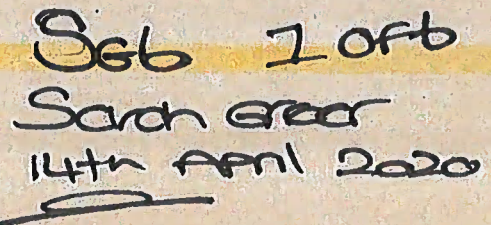 SG6 1 OF 6
Sarah Greer
14th April 2020